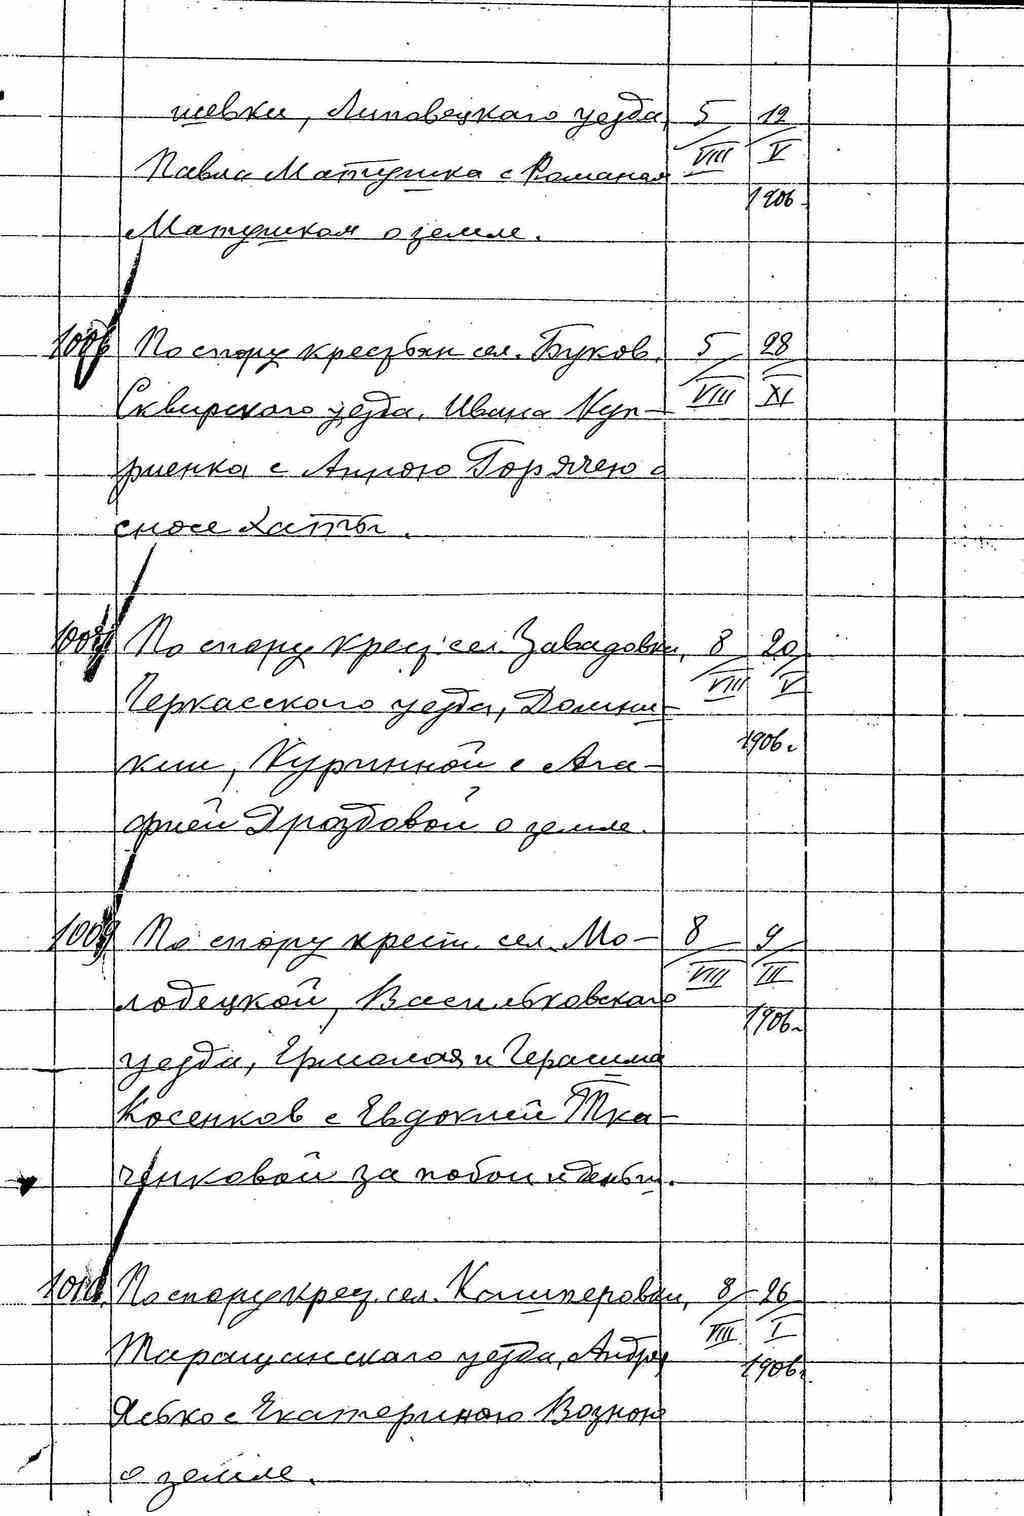 шевки, Липовецкаго уезда, 5/VIII 12/V
Павла Матушка с Романом 1906
Матушком о земле.
1006 По спору крестьян сел. Буков, 5/VIII 28/XI
Сквирского уезда, Ивана Куп-
риенка с Анною Горячею о
сносе хаты.
По спору крест. сел. Завадовки, 8/VIII 20/V
Черкасского уезда, Домни- 1906 г.
кии, Куринной с Ага-
фией Дроздовой о земле.
1009 По спору крест. сел. Мо- 8/VIII 9/III
лодецкой, Васильковскаго 1906 г.
уезда, Ермолая и Герасима
Косенков с Евдокией Тка-
ченковой за побои и деньги.
1010. По спору крест. сел. Кашперовки, 8/VIII 26/I
Таращанскаго уезда, Андрея 1906 г.
с Екатериною Возною
о земле.